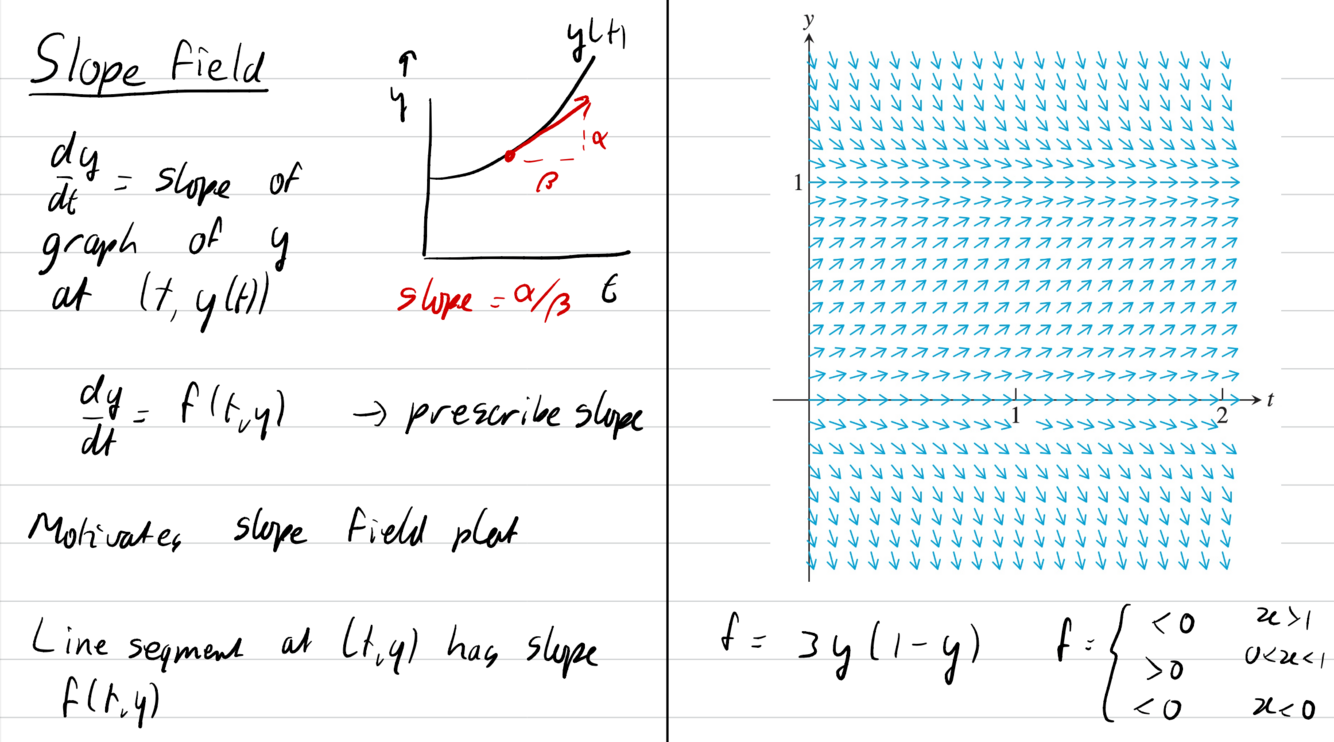 Slope Field
dy/dt = slope of
graph of y
at (t, y(t))
↑
y
y(t)
α
β
slope = α/β
t
dy/dt = f(t,y) → prescribe slope
Motivates slope field plot
Line segment at (t,y) has slope
f(t,y)
y
1
1
2
t
f = 3y(1-y)
f = { <0 x>1
>0 0<x<1
<0 x<0